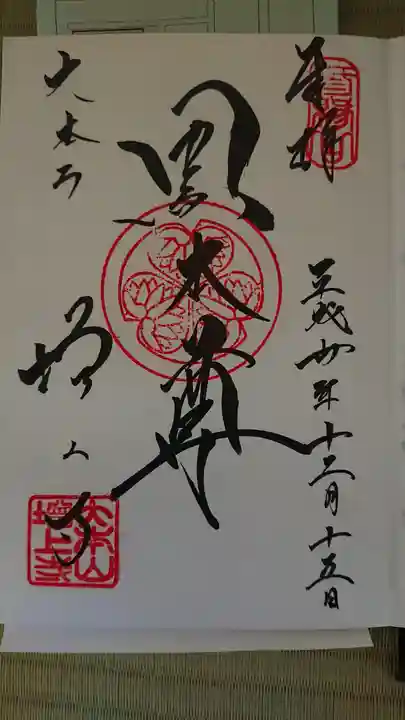 奉拝
平成卅年十二月十五日
黒本尊
大本山
増上寺
大本山
増上寺